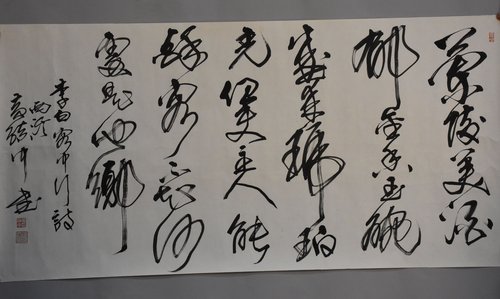 蘭陵美酒
郁金香玉碗
盛来琥珀
光但使主人能
醉客不知何
處是他鄉
李白客中行詩